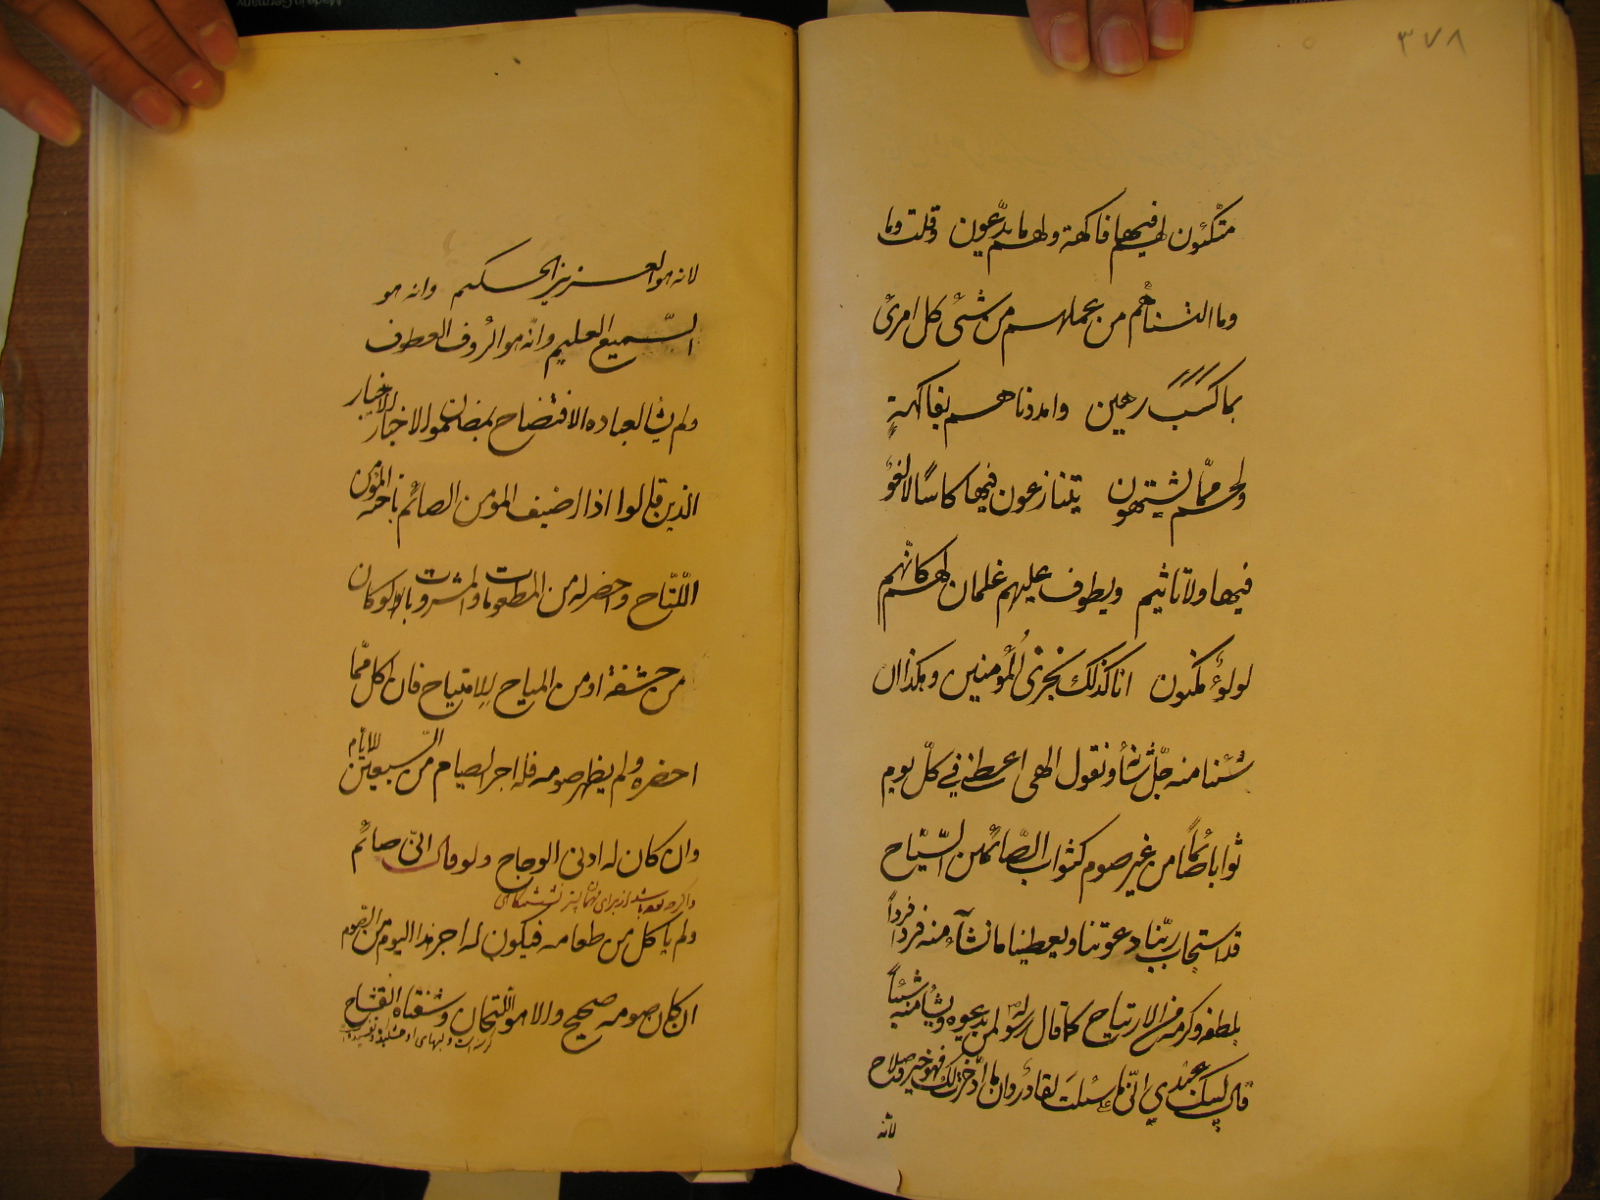 ٣٧٨
متكئون لهم فيها فاكهة ولهم ما يدّعون وقلت وما
وما التناهم من عملهم من شئ كل امرئ
بما كسب رهين وامددناهم بفاكهةٍ
ولحم ممّا يشتهون يتنازعون فيها كاسًا لا لغوٌ
فيها ولا تاثيم ويطوف عليهم غلمان لهم كانّهم
لولوٌ مكنون انا كذلك نجزى المُؤمنين وهكذا ان
شئنا منه جلّ شأ ونقول الهى اعطنى في كلّ يوم
ثوابا من غير صوم كثواب الصّائمين السّيّاح
قد استجاب ربّنا دعوتنا ويعطينا ما نشآء منه فرداً فرداً
بلطفه وكرمه الارتياح كما قال رسوله لمن يدعوه ويشأ منه شيئاً
قال لبيك عبدي انّى على ما سئلت لقادر وان ما ادّخرتُ لك فهو خير وصلاح
لانه
لانه هو العزيز الحكيم وانه هو
السّميع العليم وانّه هو الرؤف العطوف
ولم يشأ لعباده الافتضاح بمضمون الاخبار
الذين قالوا اذا اضيف المؤمن الصائم باخيه المؤمن
اللّتاح واحضر له من المطعومات والمشروبات ولو كان
من حشفة او من المياح للامتياح فان اكل ممّا
احضره ولم يظهر صومه فله اجر الصيام من السّبعين للايّام
وان كان له ادنى الوجاح ولو قال انّى صائم
ولم ياكل من طعامه فيكون له اجر هذا اليوم من الصّوم
ان كان صومه صحيح والا هو اللتحان وشفتاه القشاح